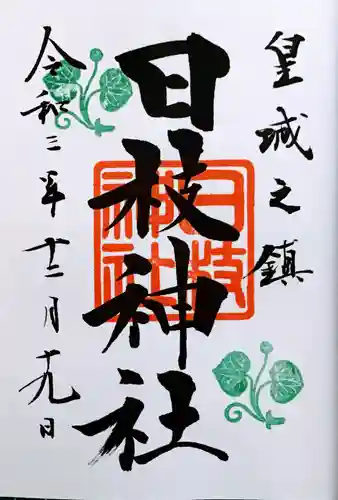 皇城之鎮
日枝神社
日枝神社
令和三年十二月十九日